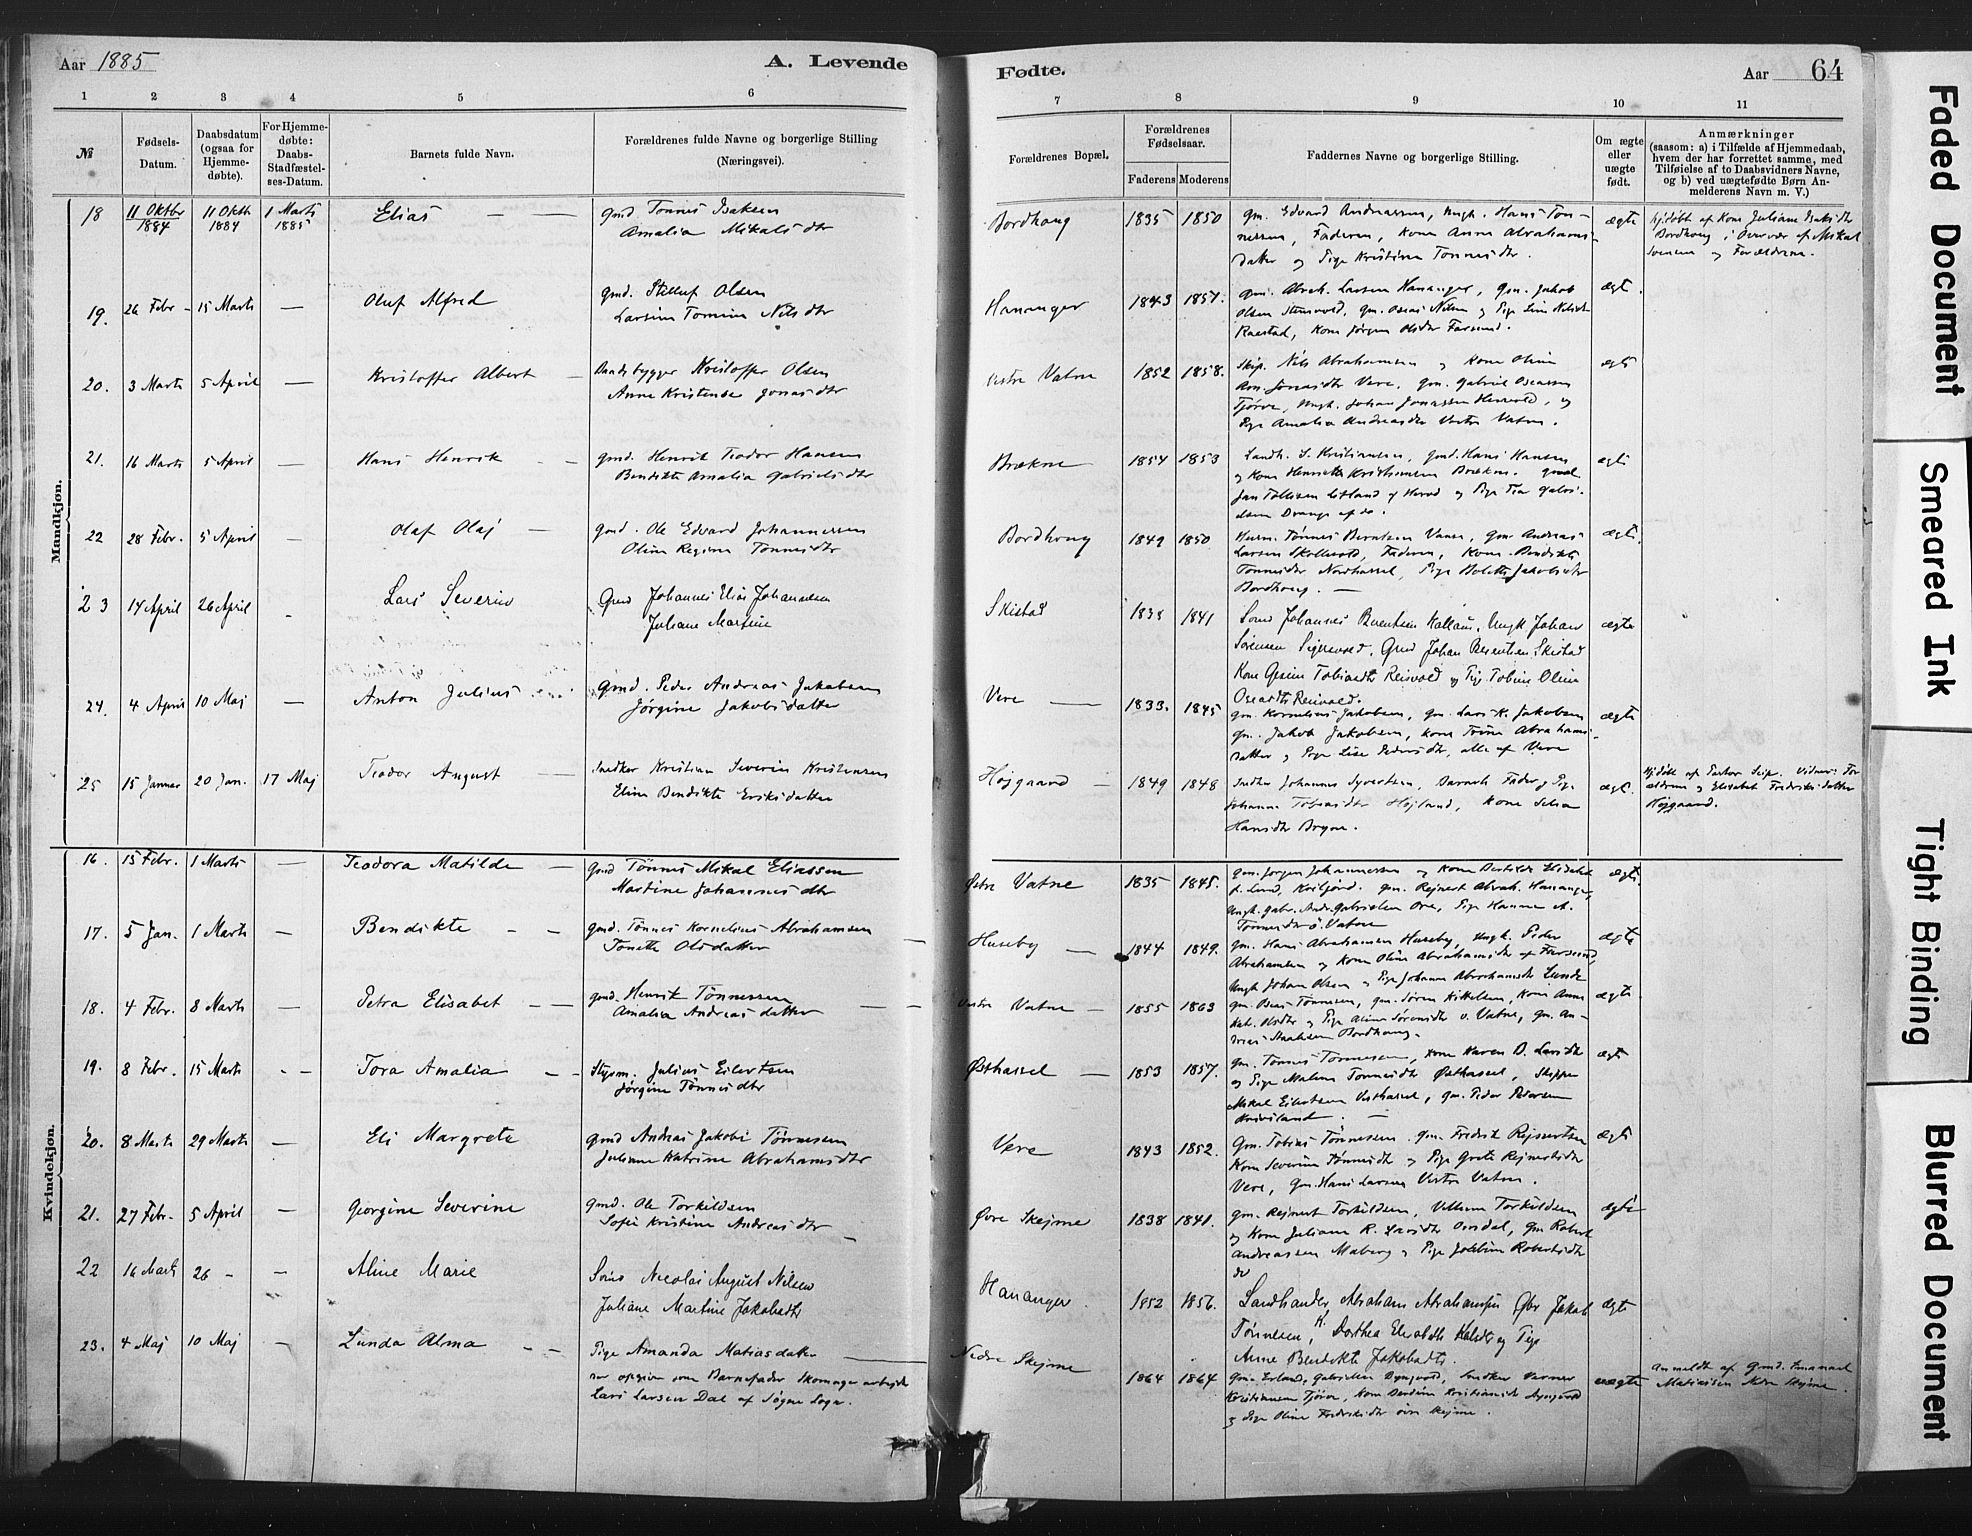 Aar 1885
A. Levende
Fødte.
Aar 64
1 2 3 4 5 6
7 8 9 10 11
№
Fødsels-
Datum.
Daabsdatum
(ogsaa for
Hjemme-
døbte).
For Hjemme-
døbte:
Daabs-
Stadfæstel-
ses-Datum.
Barnets fulde Navn.
Forældrenes fulde Navne og borgerlige Stilling
(Næringsvei).
Forældrenes Bopæl.
Forældrenes
Fødselsaar.
Faderens Moderens
Faddernes Navne og borgerlige Stilling.
Om ægte
eller
uægte
født.
Anmærkninger
(saasom: a) i Tilfælde af Hjemmedaab,
hvem der har forrettet samme, med
Tilføielse af to Daabsvidners Navne,
og b) ved uægtefødte Børn An-
melderens Navn m. V.)
Mandkjøn.
18 11 Oktbr 1884 11 Oktb 1884 1 Marts 1885 Elias
gmd Tönnes Isaksen
Amalia Mikalsdtr
Bordhoug 1835 1850
gm. Edvard Andreassen, Ungk. Hans Tön-
nessen, Faderen, Kone Anna Abrahams-
datter og Pige Kristine Tönnesdtr.
ægte
hjdøbt af Kone Juliane Isaksdtr
Bordhoug i Overvær af Mikal
Svensen og Forældrene.
19. 26 Febr - 15 Marts — Oluf Alfred
gmd. Olsen
Larsine Tomine Nilsdtr
Hananger 1843 1857.
gm. Abrah. Larsen Hananger, gm. Jakob
Olsen gm. Nilsen og Pige Line Nilsdtr
Kone Jörgine Olsdtr Farsund.
ægt.
20. 3 Marts 5 April — Kristoffer Albert —
Baadsbygger Kristoffer Olsen
Anne Kristense Jonasdtr
Vestre Vatne 1852 1858.
Skip. Nils Abrahamsen og Kone Oline
Jonasdtr Vere, gm. Gabriel
Tjörve, Ungk. Johan Jonassen , og
Pige Amalia Andreasdtr Vestre Vatne.
ægt
21. 16 Marts 5 April — Hans Henrik
gmd. Henrik Teodor Hansen
Bendikte Amalia Gabrielsdtr
Brækne 1854 1853
Landh. S. Kristiansen, gmd. Hans Hansen
og Kone Henriette Kristiansen Brækne. gmd
Jan Tollisen af Herad og Pige Tea Gabri-
elsen Drange af do.
ægt
22 28 Febr. 5 April — Olaf Olaj —
gmd. Ole Edvard Johannessen
Oline Regine Tönnesdtr
Bordhoug 1849 1850
Tönnes Berntsen Vanse, gm Andreas
Larsen Skollevold, Faderen, Kone Bendikte
Tönnesdtr Nordhassel, Pige Bolette Jakobsdtr
Bordhoug. —
ægt.
23 14 April 26 April - Lars Severin
Gmd Johannes Elias Johannesen
Juliane Martine
Skistad 1838 1841
Johannes Berentsen Kallam, Ungk Johan
Sörensen Sigersvold, Gmd Johan Berentsen Skistad
Kone Gesine Tobiasdtr Reisvold og Pig Tobine Oline
Reisvold.
ægte
24. 4 April 10 Maj — Anton Julius
Gmd. Peder Andreas Jakobsen
Jörgine Jakobsdatter
Vere — 1833. 1845
gm. Kornelius Jakobsen, gm. Lars K. Jakobsen
gm. Jakob Jakobsen, Kone Trine Abrahams-
datter og Pige Lise Pedersdtr, alle af Vere
ægte
25 15 Januar 20 Jan. 17 Maj Teodor August —
Snedker Kristian Severin Kristensen
Elina Bendikte Eriksdatter
Højgaard — 1849 1848
Snedker Johannes Syvertsen, Barnets Fader og Pige
Johanne Tobiasdtr Højland, Kone
Hansdtr Bryne.
ægt.
Hjdøbt af Pastor Seip. Vidner: For-
ældrene og Elisabet Fredriksdatter
Højgaard.
Kvindekjøn.
16. 15 Febr. 1 Marts — Teodora Matilde —
gmd Tönnes Mikal Eliassen
Martine Johannesdtr
Østre Vatne 1835 1845.
gm. Jörgen Johannessen og Kone Elisabet
Lund, . gm. Rejnert Abrah. Hananger,
Ungk. Gabr. Andr. Gabrielsen Ore, Pige Hanna A.
Tönnesdtr ö. Vatne
ægt.
17. 5 Jan. 1 Marts — Bendikte — —
gmd. Tönnes Kornelius Abrahamsen
Tonette Olsdatter
Huseby — 1844 1849.
gm. Hans Abrahamsen Huseby, Ungk. Peder
Abrahamsen og Kone Oline Abrahamsdtr af Farsund,
Ungk Johan Olsen og Pige Johanne Abrahamsdtr Lunde
ægte
18. 4 Febr. 8 Marts — Petra Elisabet — —
gmd. Henrik Tönnessen
Amalia Andreasdatter
Vestre Vatne — 1855 1863
gm. Tönnesen, gm. Sören Kittelsen, Kone Anne
Kat. Olsdtr og Pige Aline Sörensdtr v. Vatne, gm. An-
dreas Bordhoug.
ægte
19. 8 Febr. 15 Marts - - Tora Amalia — —
Stysm. Julius Eilertsen
Jörgine Tönnesdtr
Østhassel — 1853 1857.
gm. Tönnes Tönnessen, Kone Karen B. Larsdtr
og Pige Malene Tönnesdtr Østhassel, Skipper
Mikal Eilertsen Vesthassel, gm. Peder Pedersen
. —
ægt
20. 8 Marts 29 Marts — Eli Margrete
gmd Andreas Jakobi Tönnesen
Juliane Katrine Abrahamsdtr
Vere 1843 1852.
Gm. Tobias Tönnesen. gm. Fredrik Rejnertsen
Kone Severine Tönnesdtr og Pige Grete Rejnertsdtr
Vere, Gm. Hans Larsen Vestre Vatne.
ægt
21. 27 Febr. 5 April — Georgine Severine
gmd. Ole Torkildsen
Sofie Kristine Andreasdtr
Øvre Skejme 1838 1841.
gm. Rejnert Torkildsen, Vilhelm Torkildsen
og Kone Juliane R. Larsdtr , gm Robert
Andreassen Maberg og Pige Jakobine Robertsdtr
do
ægte
22 16 Marts 26 - — Aline Marie
Nicolai August Nilsen
Juliane Martine Jakobsdtr
Hananger. 1852 1856.
Landhandler Abraham Abrahamsen Jakob
Tönnesen, K. Dorthea Elisabeth og Pige
Anne Bendikte Jakobsdtr.
ægte
23. 4 Maj 10 Maj — Lunda Alma — —
Pige Amanda Matiasdatter
som opgiver som Barnefader Skomagerarbejder
Lars Larsen Dal af Søgne Sogn.
Nedre Skejme 1864 1864
Gm. Erland Gabrielsen , Snedker Verner
Kristiansen Tjörve, Kone Kristiansdtr
og Pige Oline Fredriksdtr övre Skejme.
uægte
Anmeldt af Gmd. Emanuel
Matiassen Nedre Skejme.
Faded Document
Smeared Ink
Tight Binding
Blurred Document